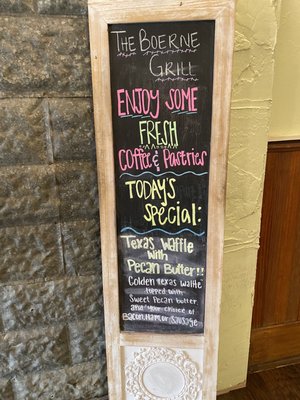 The Boerne
Grill
Enjoy Some
Fresh
Coffee & Pastries
Today's
Special:
Texas Waffle
with
Pecan Butter!!
Golden Texas Waffle
topped with
Sweet Pecan butter
and your choice of
Bacon, Ham, or Sausage